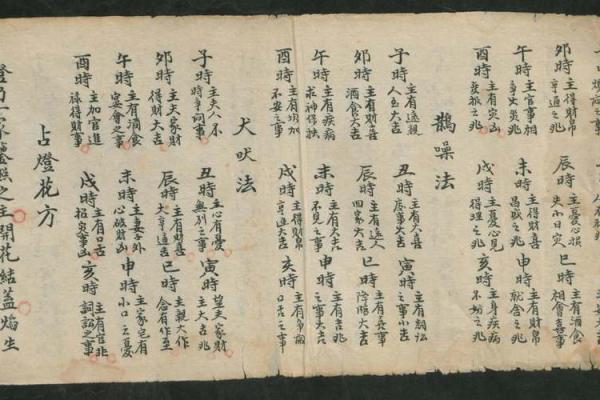 卯時 主得財帛亨通之兆 辰時 主憂心損失小日灾 巳時 主有酒食相會喜事
午時 主官事相爭火炎兆 未時 主得財帛昌熾之兆 申時 主有財帛就舍之兆
酉時 主有灾凶之兆 戌時 主憂心見得理之兆 亥時 主身疾病不妨之兆
鵲噪法
子時 主有遠親人至大吉 丑時 主有大喜慶事大吉 寅時 主有鬪訟之事小吉
卯時 主有財喜酒食大吉 辰時 主有遠人回家大吉 巳時 主有喜事降臨大吉
午時 主有疾病求神得扶 未時 主有大吉不見之事 申時 主有吉兆之事大吉
酉時 主有增加不安之事 戌時 主得財帛亨通大吉 亥時 主有爭鬧口舌之事
犬吠法
子時 主夫人不時爭詞事 丑時 主心有憂無別之事 寅時 望夫家財主大吉兆
卯時 主夫家財得財大吉 辰時 主有財喜大亨通吉 巳時 主親大作念有作至
午時 主有酒食宴會之事 未時 主妻子外心破財凶 申時 主家包有小口之憂
酉時 主加官進祿得財事 戌時 主有口舌招災事凶 亥時 主有官兆詞訟之事
占燈花方
燈乃一家照之主開花結蓋焰生